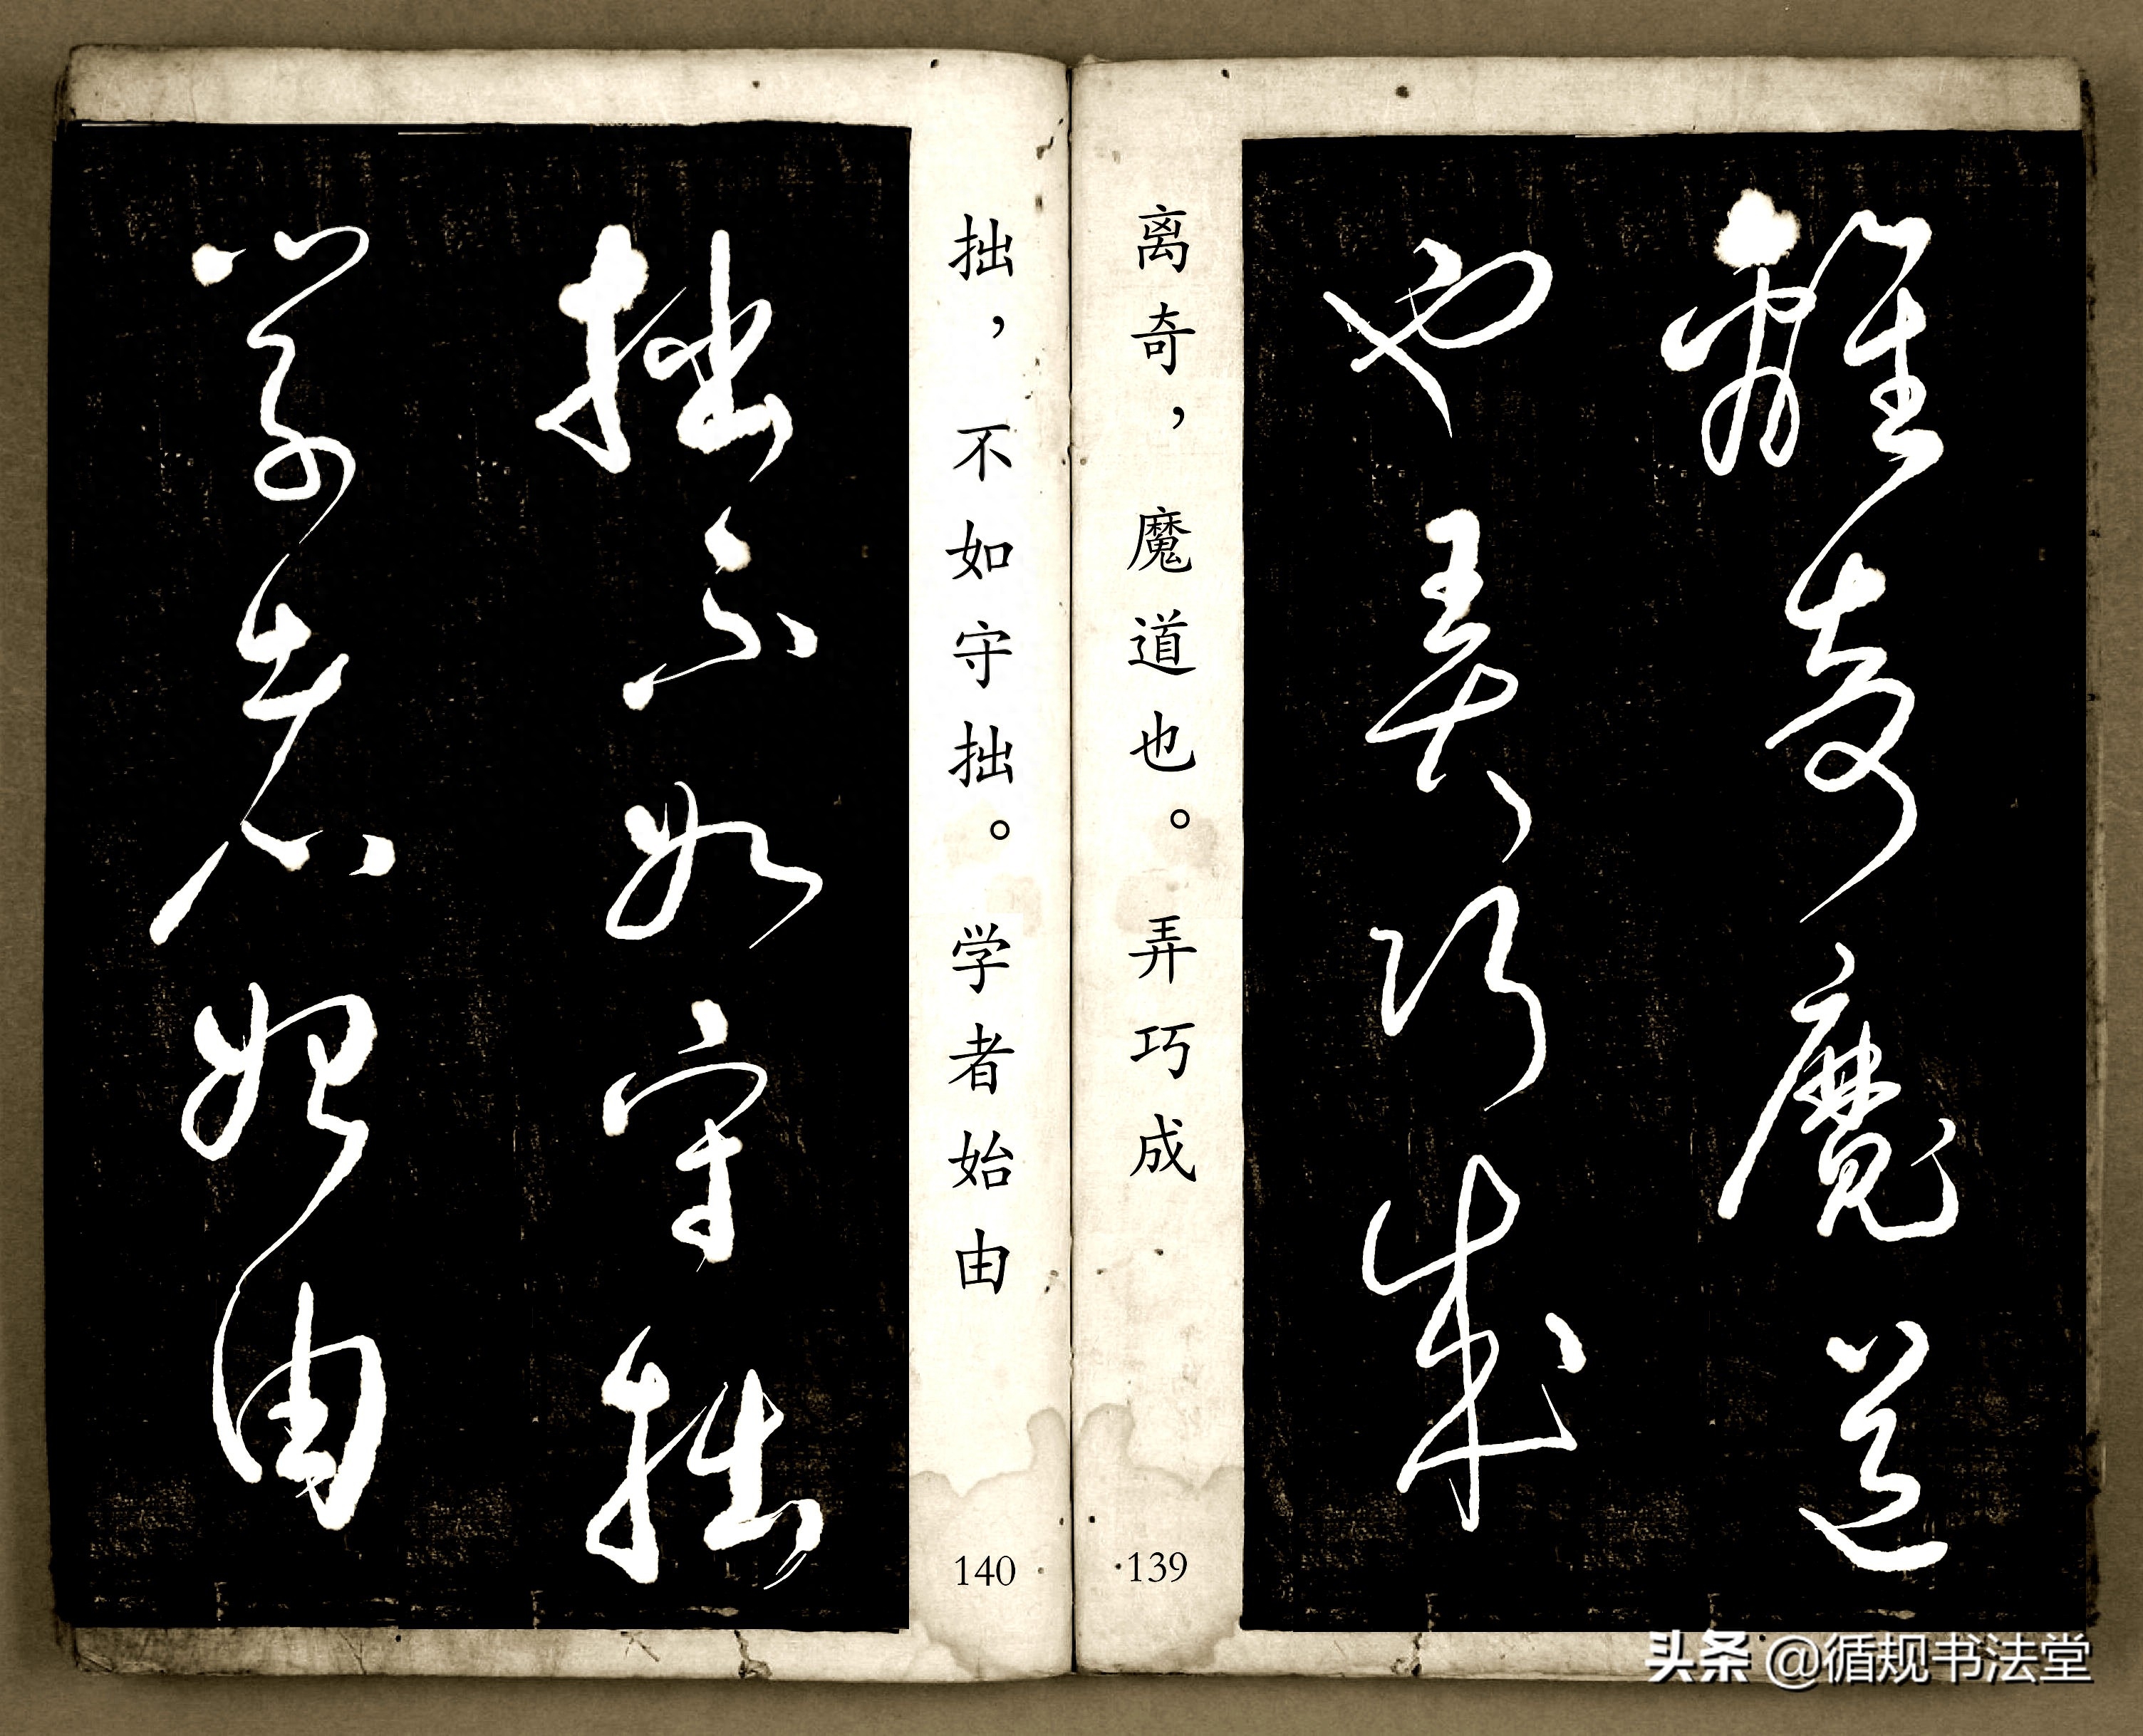 離奇魔道
也弄巧成
离奇，魔道也。弄巧成
139
拙不如守拙
學者始由
拙，不如守拙。学者始由
140
头条 @循规书法堂